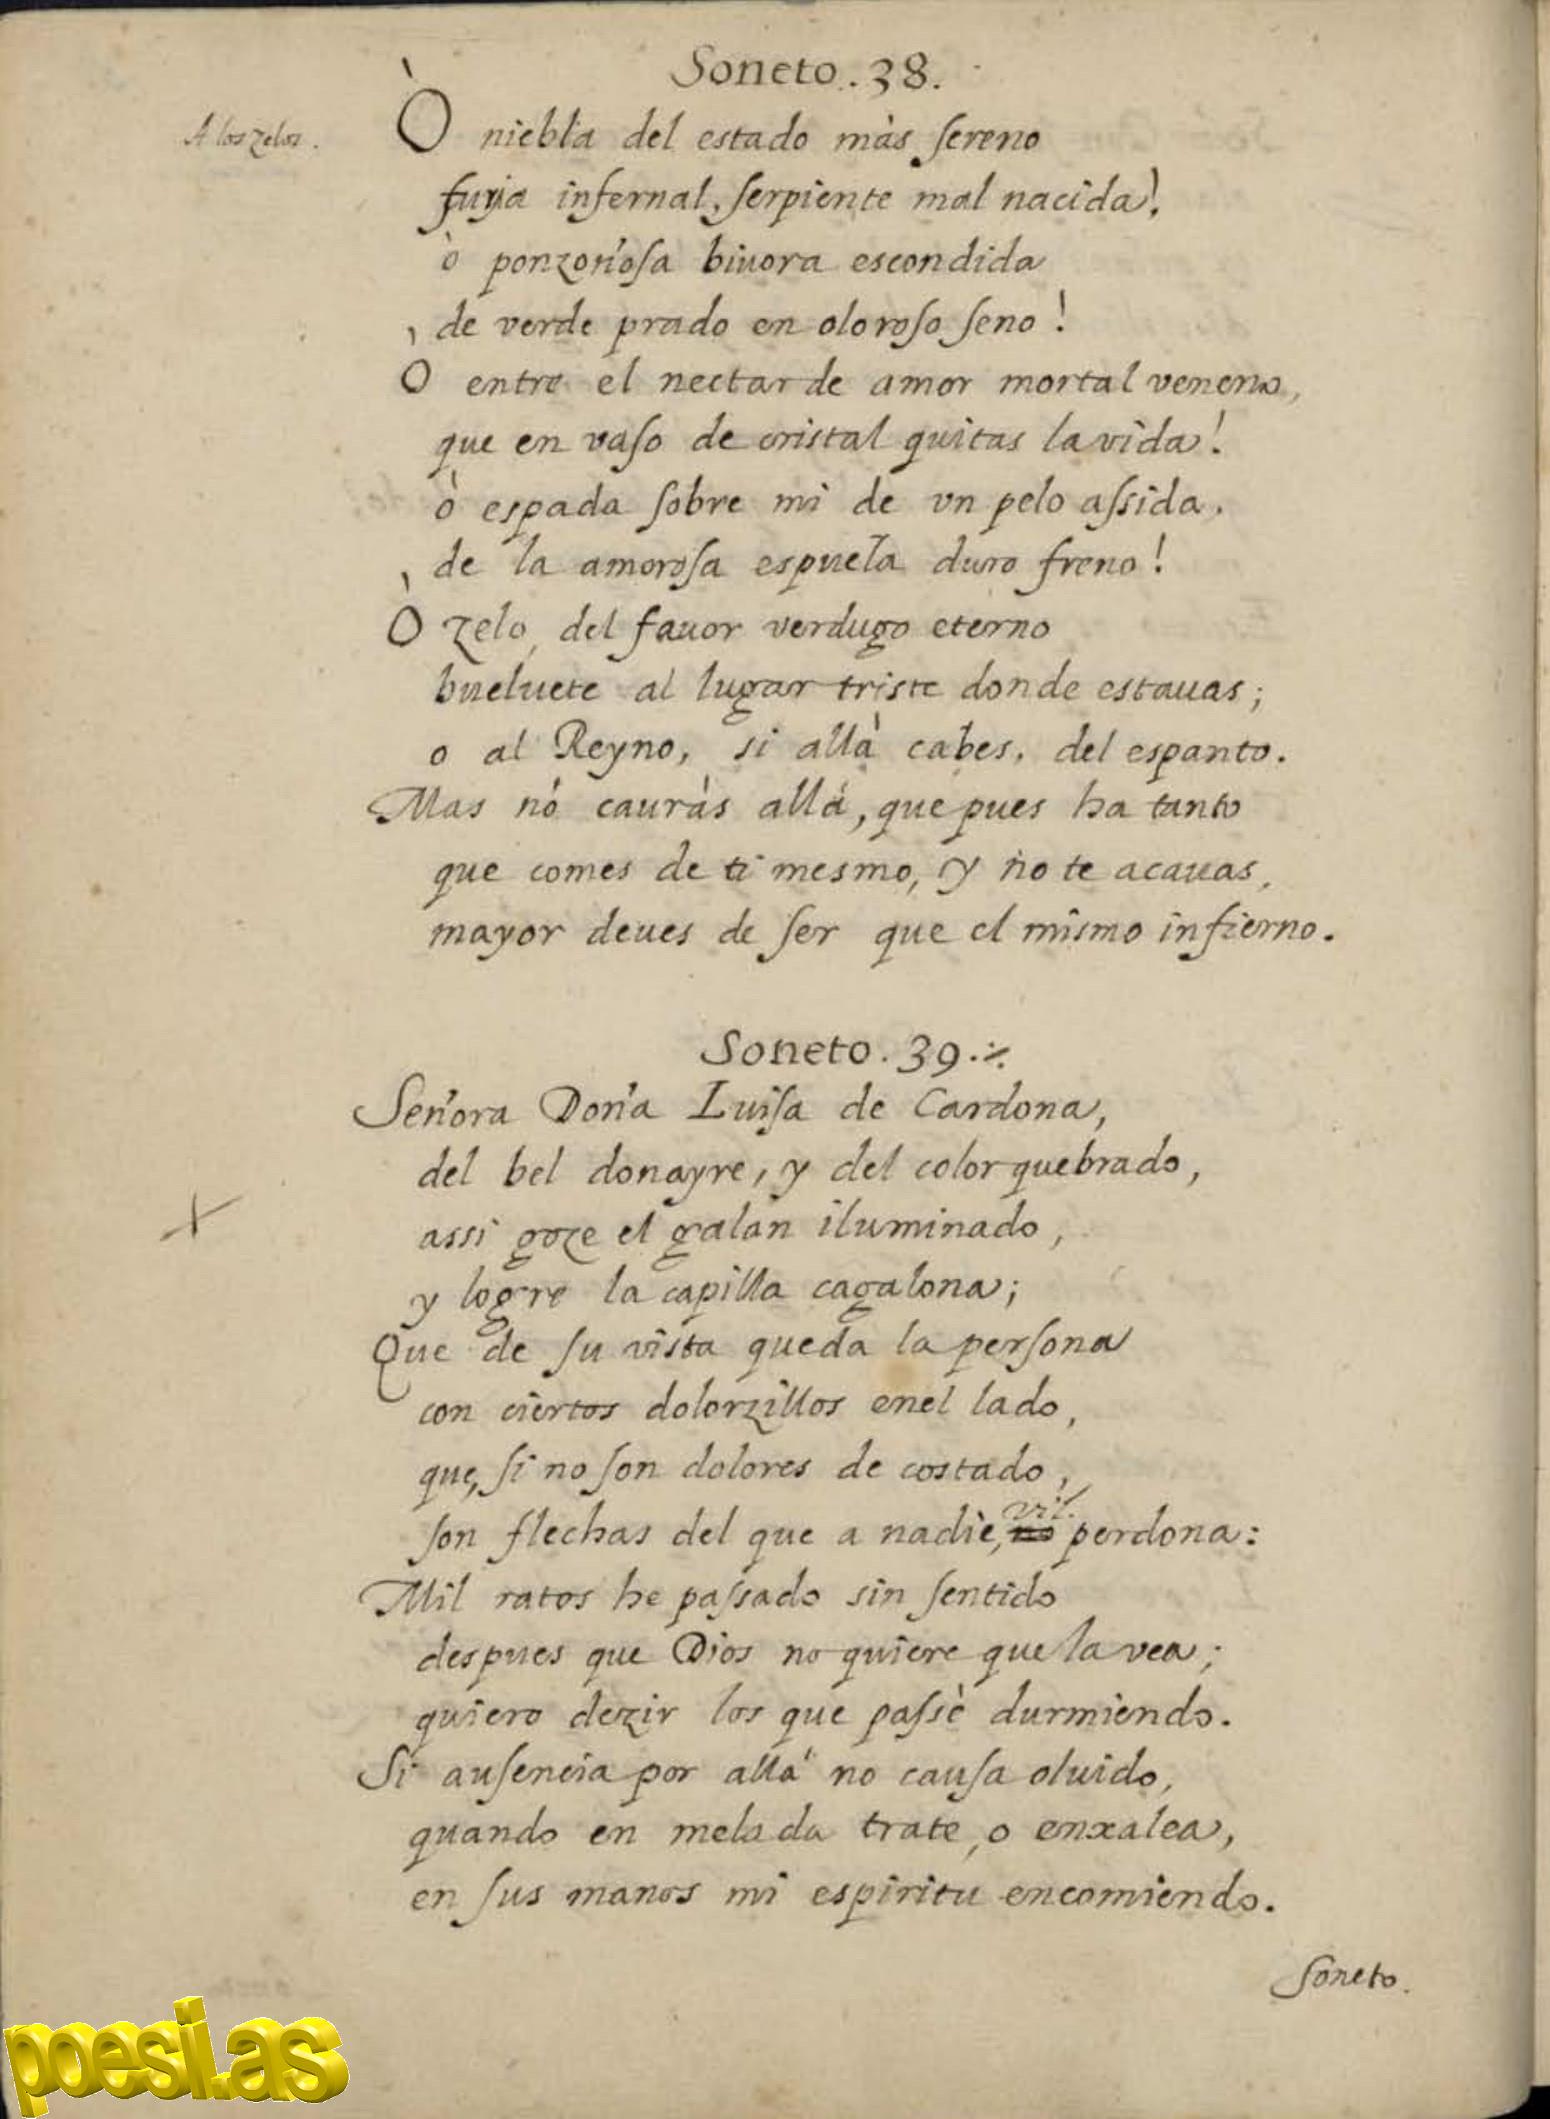 Soneto. 38.
A los zelos.
Ò niebla del estado màs sereno
furia infernal, serpiente mal nacida!,
ò ponzoñosa biuora escondida
de verde prado en oloroso seno!
Ò entre el nectar de amor mortal veneno,
que en vaso de cristal quitas la vida!
ò espada sobre mi de vn pelo assida,
de la amorosa espuela duro freno!
Ò zelo, del fauor verdugo eterno
bueluete al lugar triste donde estauas;
o al Reyno, si allà cabes, del espanto.
Mas nó cauràs allá, que pues ha tanto
que comes de ti mesmo, y no te acauas,
mayor deues de ser que el mismo infierno.
Soneto. 39.
Señora Doña Luisa de Cardona,
del bel donayre, y del color quebrado,
assi goze el galan iluminado,
y logre la capilla cagalona;
Que de su vista queda la persona
con ciertos dolorzillos enel lado,
que, si no son dolores de costado,
vil.
son flechas del que a nadie, no perdona:
Mil ratos he passado sin sentido
despues que Dios no quiere que la vea;
quiero dezir los que passè durmiendo.
Si ausencia por allá no causa oluido,
quando en melada trate, o enxalea,
en sus manos mi espiritu encomiendo.
Soneto.
poesi.as